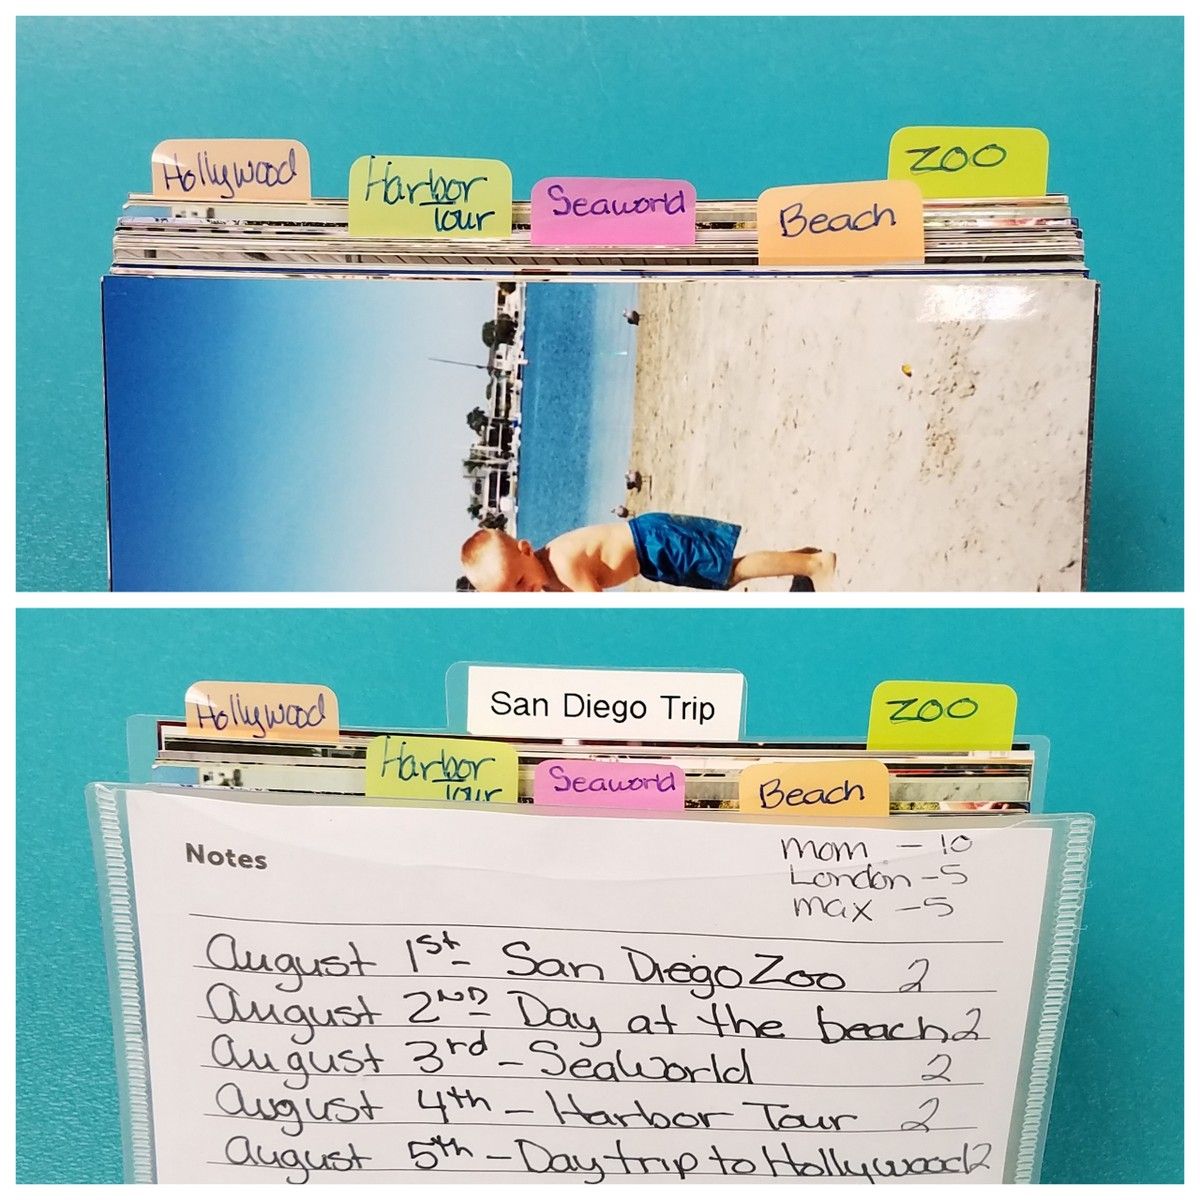 Hollywood
Harbor
Tour
Seaworld
Beach
ZOO
San Diego Trip
Hollywood
ZOO
Harbor
Tour
Seaworld
Beach
Notes
mom - 10
London - 5
max - 5
August 1st - San Diego Zoo 2
August 2ND - Day at the beach 2
August 3rd - SeaWorld 2
August 4th - Harbor Tour 2
August 5th - Day trip to Hollywood 2